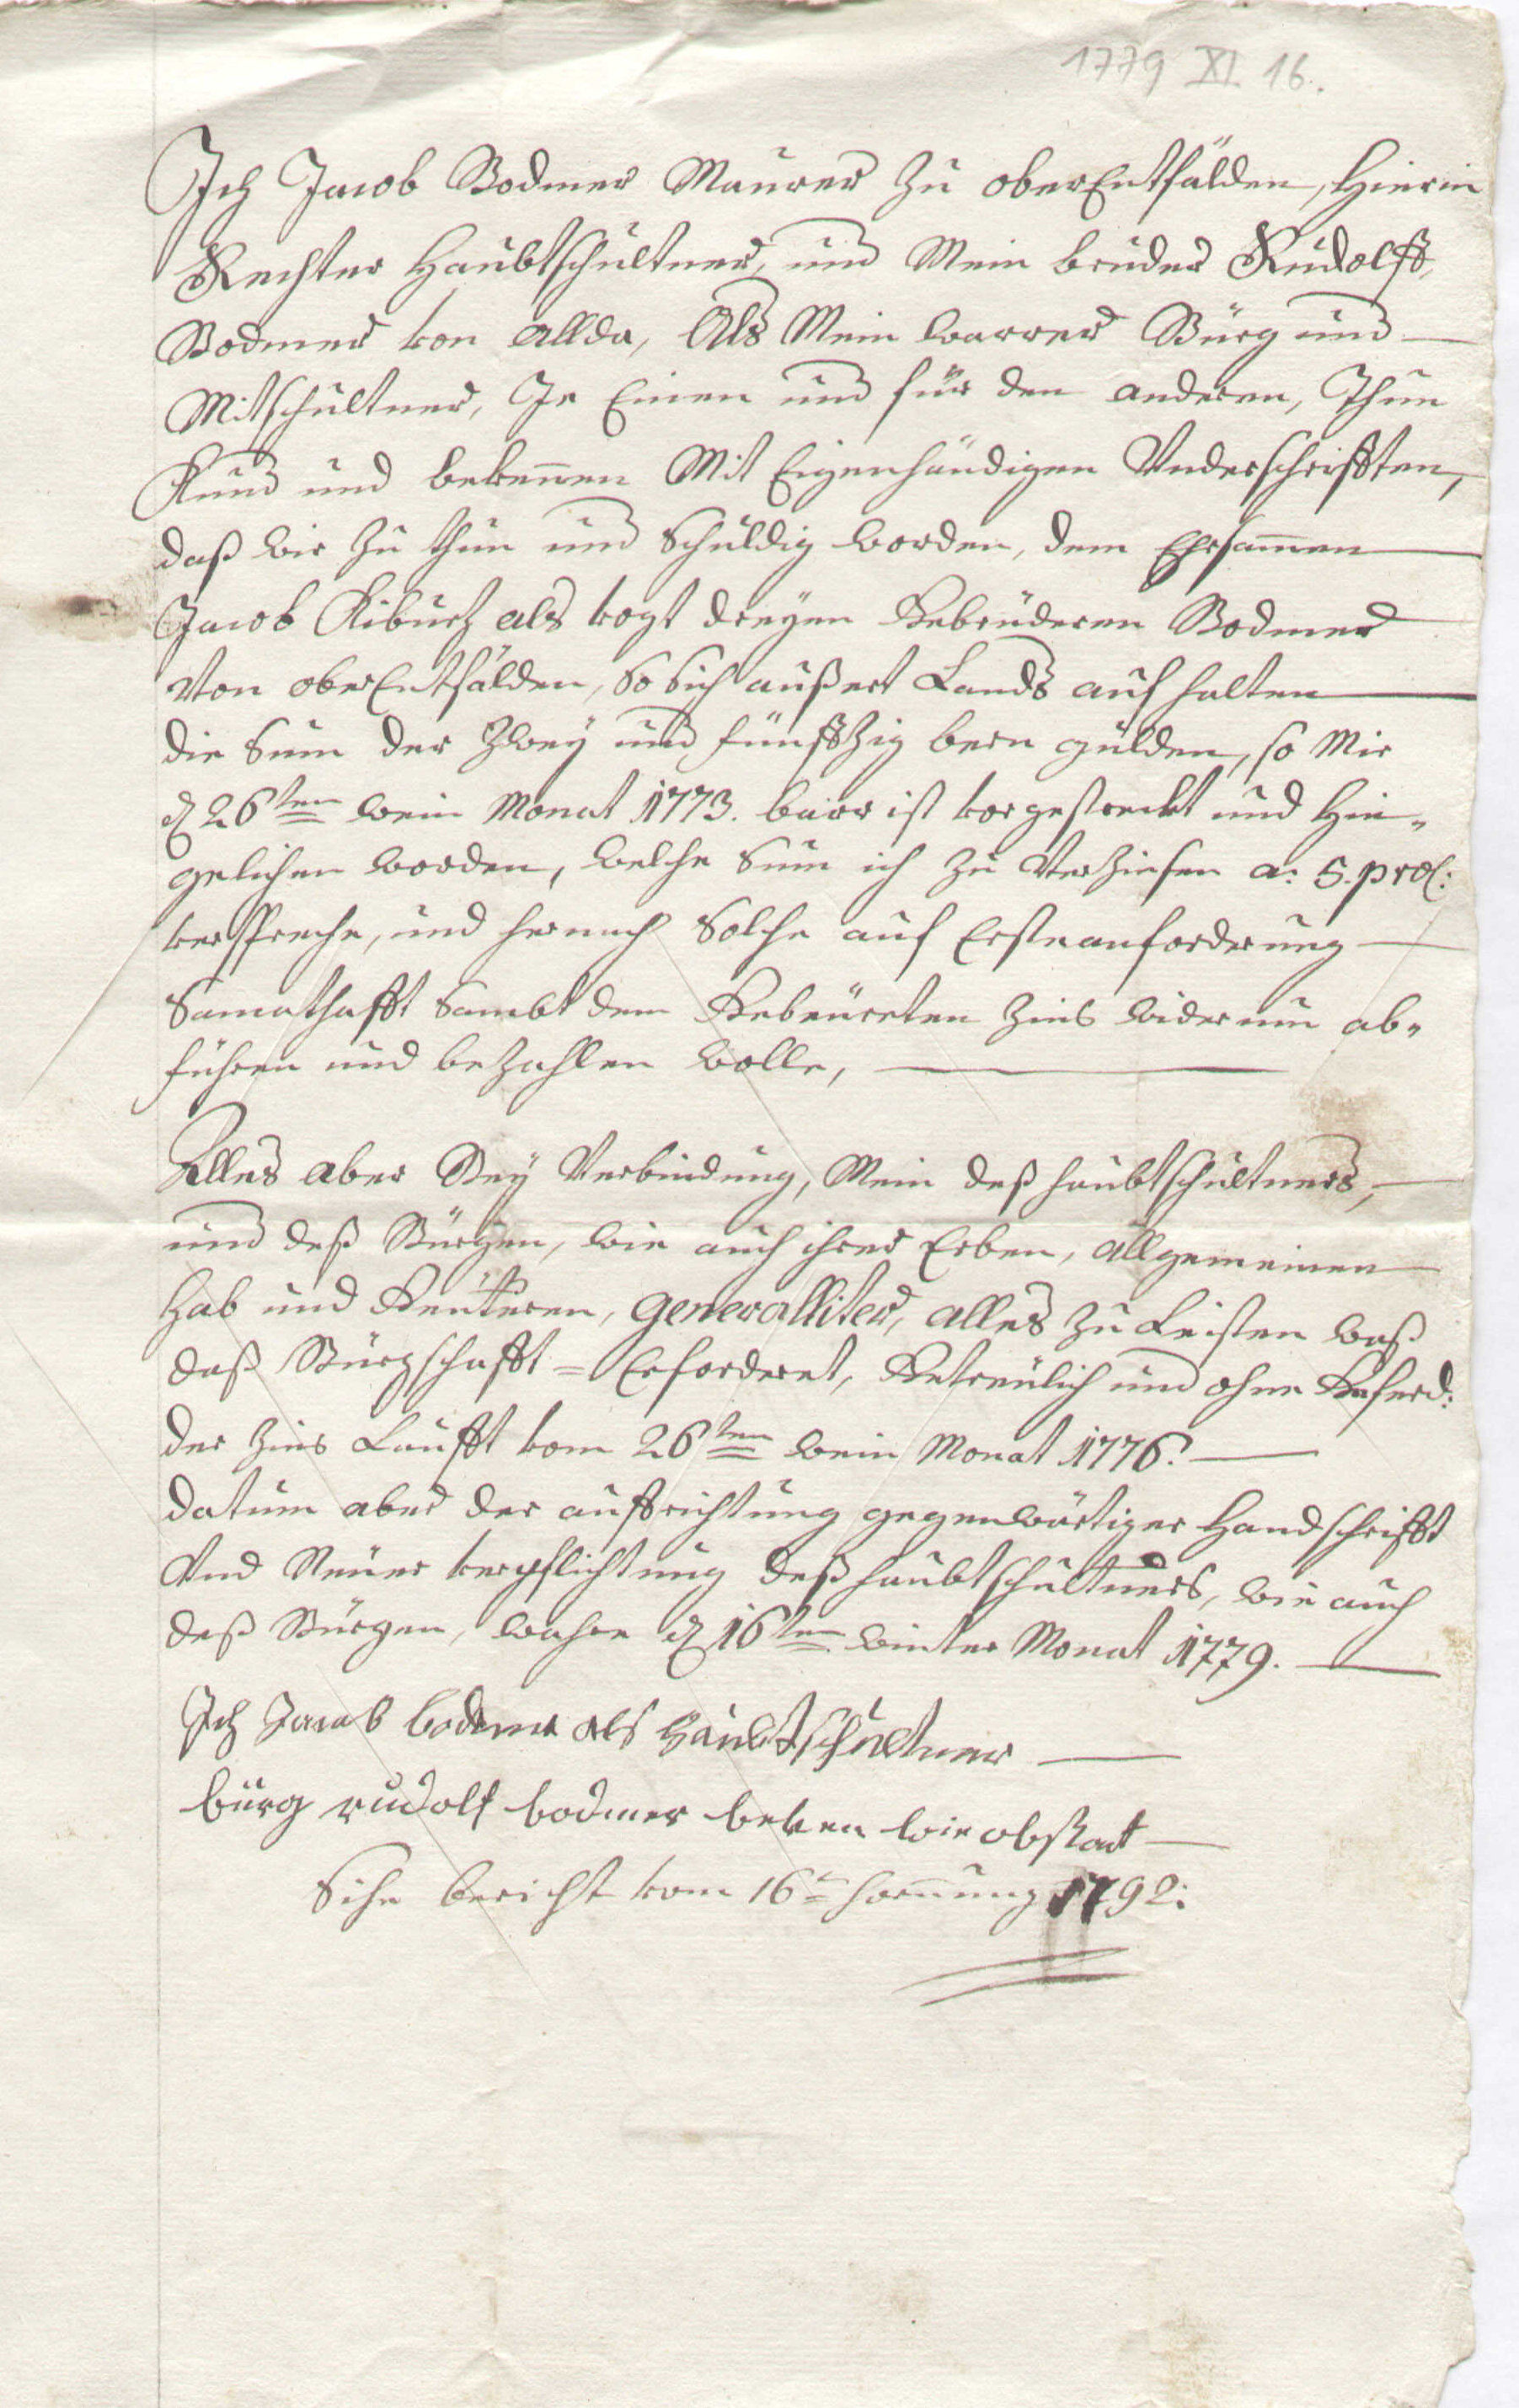 1779 XI 16.
Ich Jacob Bodmer Maurer zu oberEntfälden, hierin
Rechter Haubtschultner, und Mein bruder Rudolff
Bodmer von allda, Als Mein warrer Bürg und
Mitschultner, Je Einen und für den anderen, Thun
Kund und bekennen Mit Eigenhändigen Underschrifften,
daß wir zu thun und Schuldig worden, dem Ehrsammen
Jacob Kiburtz als vogt dreyen Gebrüderen Bodmer
Von oberEntfälden, So sich außert Lands auf halten
die Sum der Zwey und fünffzig bern gulden, so Mir
d. 26ten wein Monat 1773. baar ist vorgestreckt und hin„
gelichen worden, welche Sum ich zu Verzinsen a: 5. pro C:
verspreche, und hernach Solche auf Ersteanforderung
Samethafft Sambt dem Gebürrten Zins widerum ab„
führen und bezahlen wolle,
Alles aber Bey Verbindung, Mein deß haubtschultners,
und deß Bürgen, wie auch ihrer Erben, allgemeinen
Hab und Geüteren, generalliter, alles zu Leisten waß
daß Bürgschafft = Erforderet, Getreülich und ohne Geferd:
der Zins Laufft vom 26ten wein Monat 1776.
datum aber der aufrichtung gegenwärtiger Handschrifft
Und Neüer verpflichtung deß haubtschultners, wie auch
deß Bürgen, wahre d. 16ten winter Monat 1779.
Ich Jacob bodmer als Haubtschultner
bürg rudolf bodmer beken wie obstat
Sihe bericht vom 16t. hornung 1792: